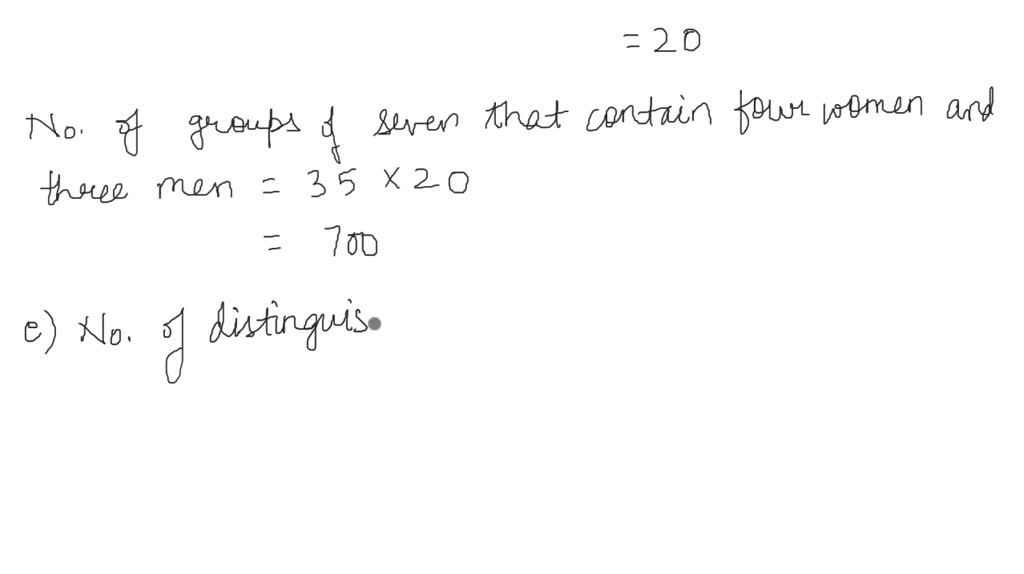 = 20
No. of groups of seven that contain four women and
three men = 35 × 20
= 700
e) No. of distinguis